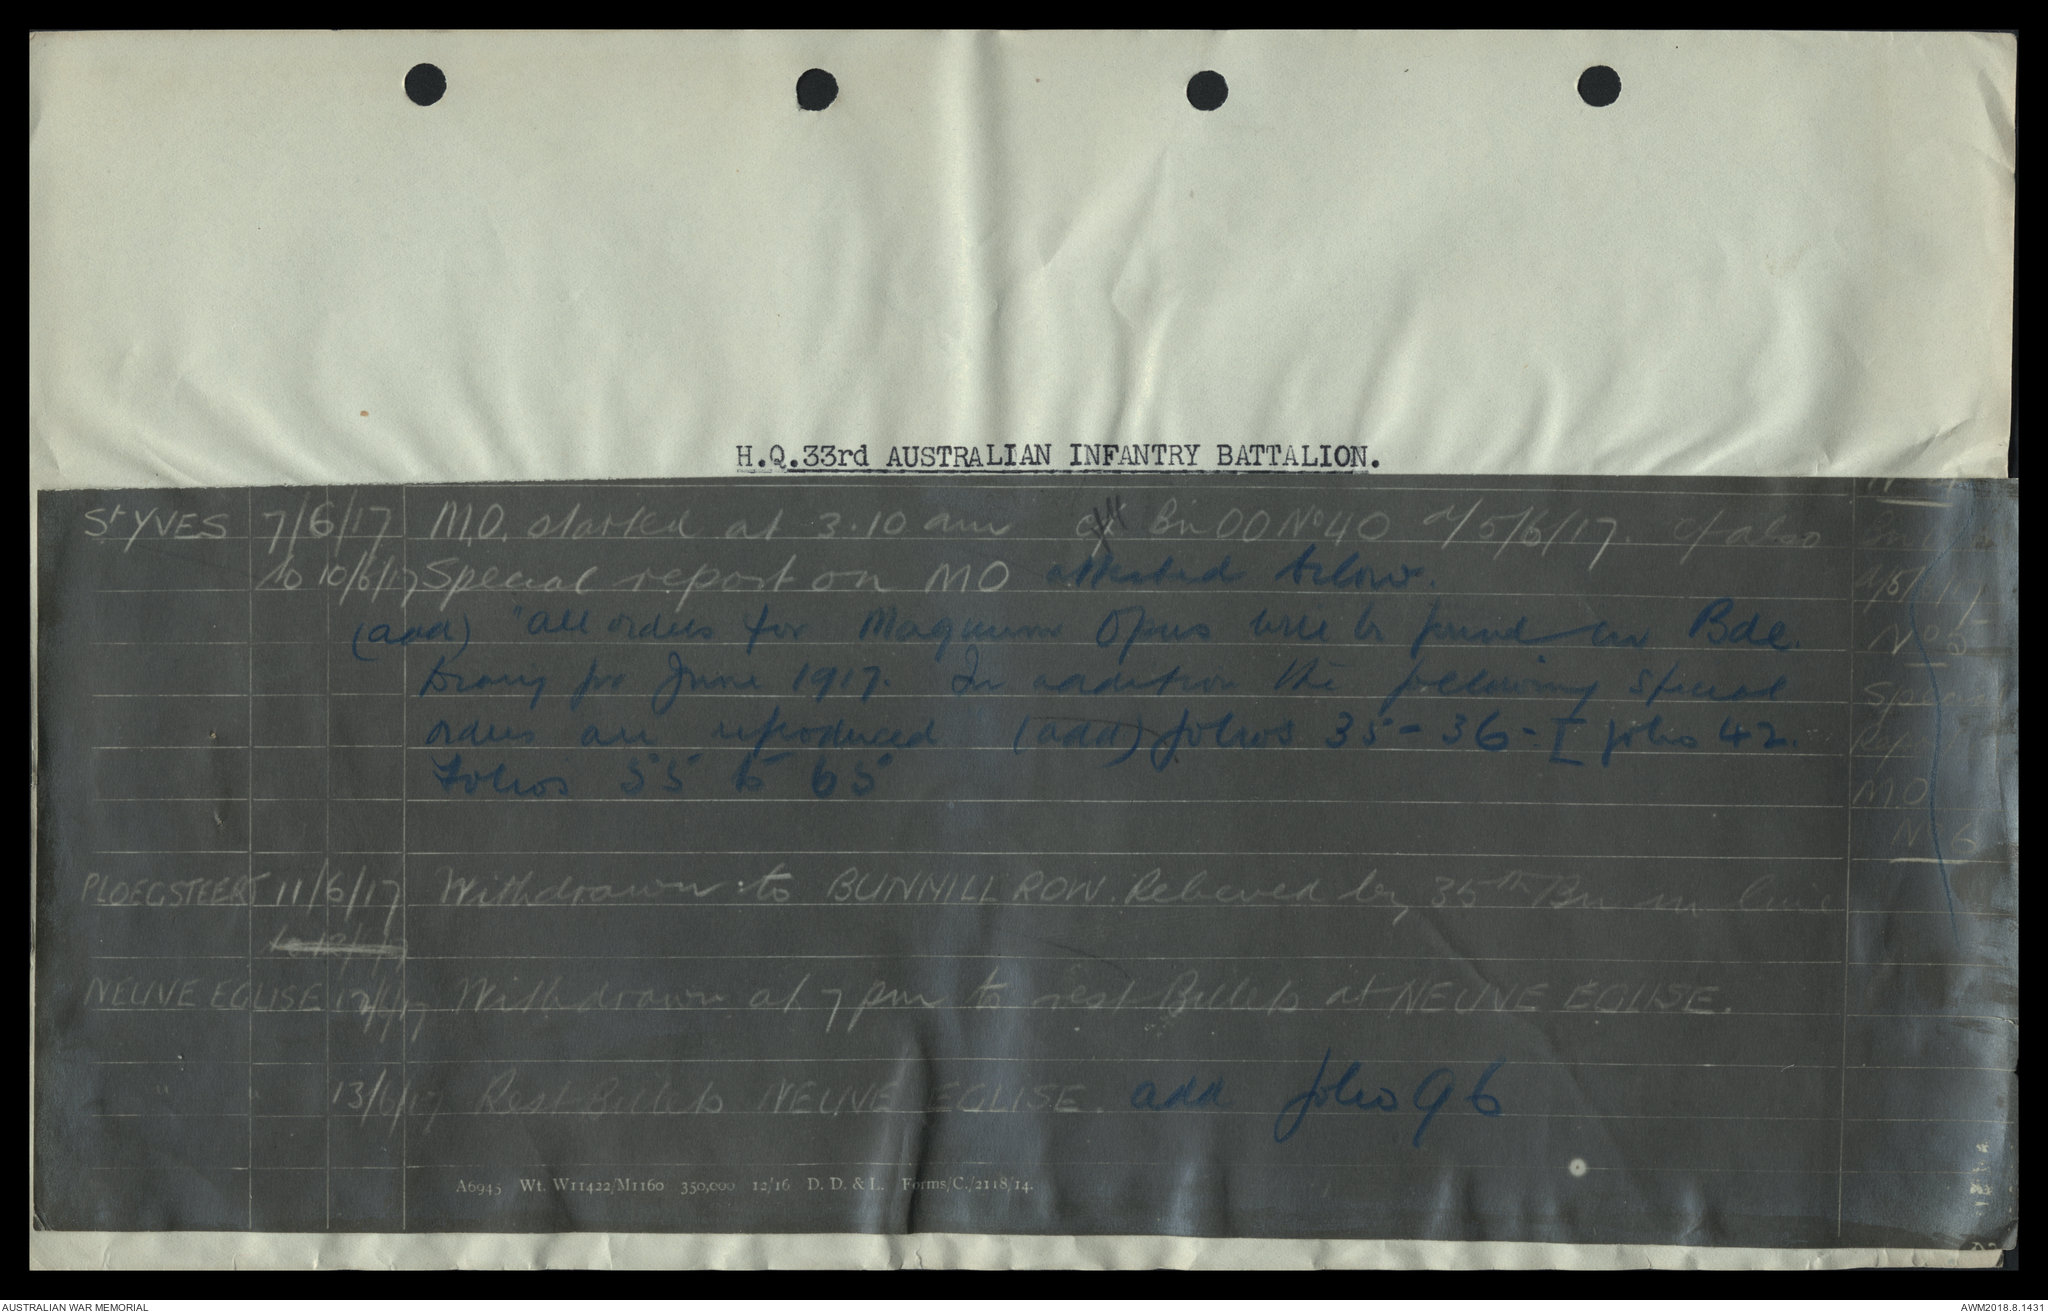 H.Q.33rd AUSTRALIAN INFANTRY BATTALION.
St YVES 7/6/17 M.O. started at 3.10 am Bn OO No 40 d/5/6/17. cf also
to 10/6/17 Special report on MO attached below.
(add) "all orders for Magnum Opus will be found in Bde.
Diary for June 1917. In addition the following special
orders are reproduced (add) folios 35 - 36 - folio 42.
Folios 55 to 65
Special
M.O
No 6
PLOEGSTEERT 11/6/17 Withdrawn to BUNHILL ROW. Relieved by 35th Bn in line
NEUVE EGLISE 12/6/17 Withdrawn at 7 pm to rest Billets at NEUVE EGLISE.
" " 13/6/17 Rest Billets NEUVE EGLISE. add folio 96
A6945 Wt. W11422/M1160 350,000 12/16 D. D. & L. Forms/C./2118/14.
AUSTRALIAN WAR MEMORIAL
AWM2018.8.1431